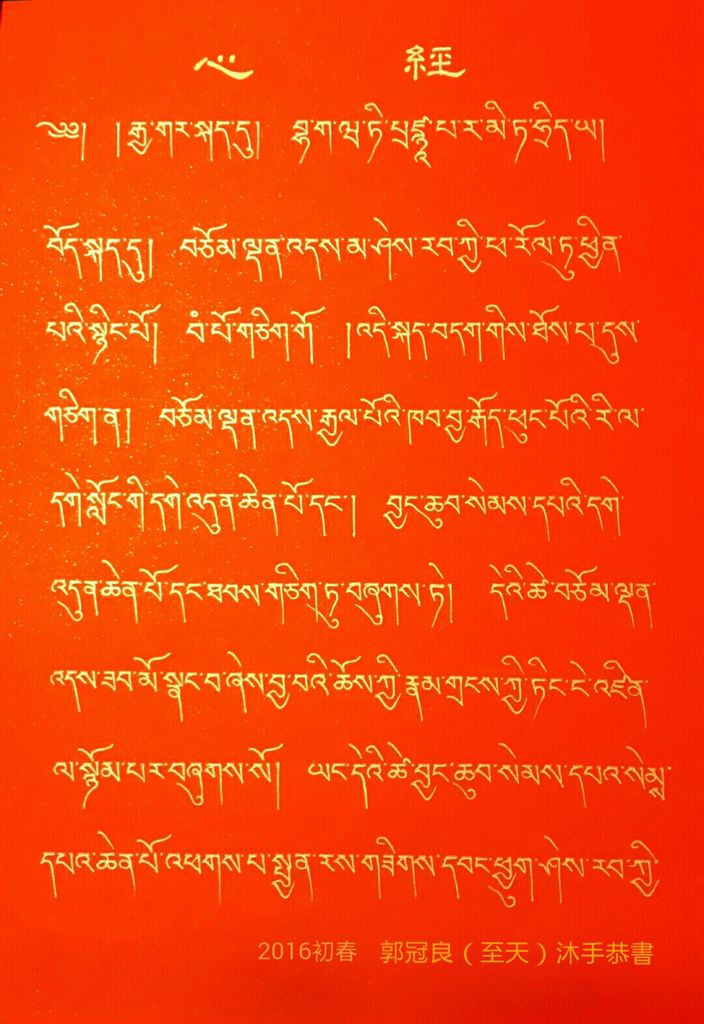 心 經
༄༅། །རྒྱ་གར་སྐད་དུ། བྷ་ག་ཝ་ཏི་པྲཛྙཱ་པ་ར་མི་ཏ་ཧྲིད་ཡ།
བོད་སྐད་དུ། བཅོམ་ལྡན་འདས་མ་ཤེས་རབ་ཀྱི་ཕ་རོལ་ཏུ་ཕྱིན་
པའི་སྙིང་པོ། བཾ་པོ་གཅིག་གོ །འདི་སྐད་བདག་གིས་ཐོས་པ་དུས་
གཅིག་ན། བཅོམ་ལྡན་འདས་རྒྱལ་པོའི་ཁབ་བྱ་རྒོད་ཕུང་པོའི་རི་ལ་
དགེ་སློང་གི་དགེ་འདུན་ཆེན་པོ་དང་། བྱང་ཆུབ་སེམས་དཔའི་དགེ་
འདུན་ཆེན་པོ་དང་ཐབས་གཅིག་ཏུ་བཞུགས་ཏེ། དེའི་ཚེ་བཅོམ་ལྡན་
འདས་ཟབ་མོ་སྣང་བ་ཞེས་བྱ་བའི་ཆོས་ཀྱི་རྣམ་གྲངས་ཀྱི་ཏིང་ངེ་འཛིན་
ལ་སྙོམ་པར་བཞུགས་སོ། ཡང་དེའི་ཚེ་བྱང་ཆུབ་སེམས་དཔའ་སེམྶ་
དཔའ་ཆེན་པོ་འཕགས་པ་སྤྱན་རས་གཟིགས་དབང་ཕྱུག་ཤེས་རབ་ཀྱི་
2016初春 郭冠良（至天）沐手恭書